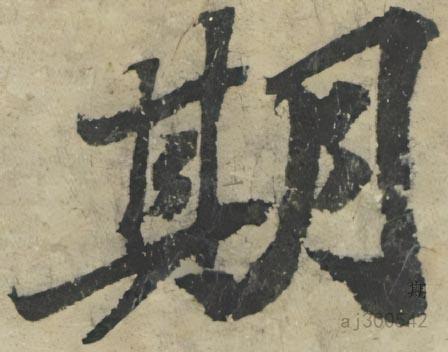 期
aj300542